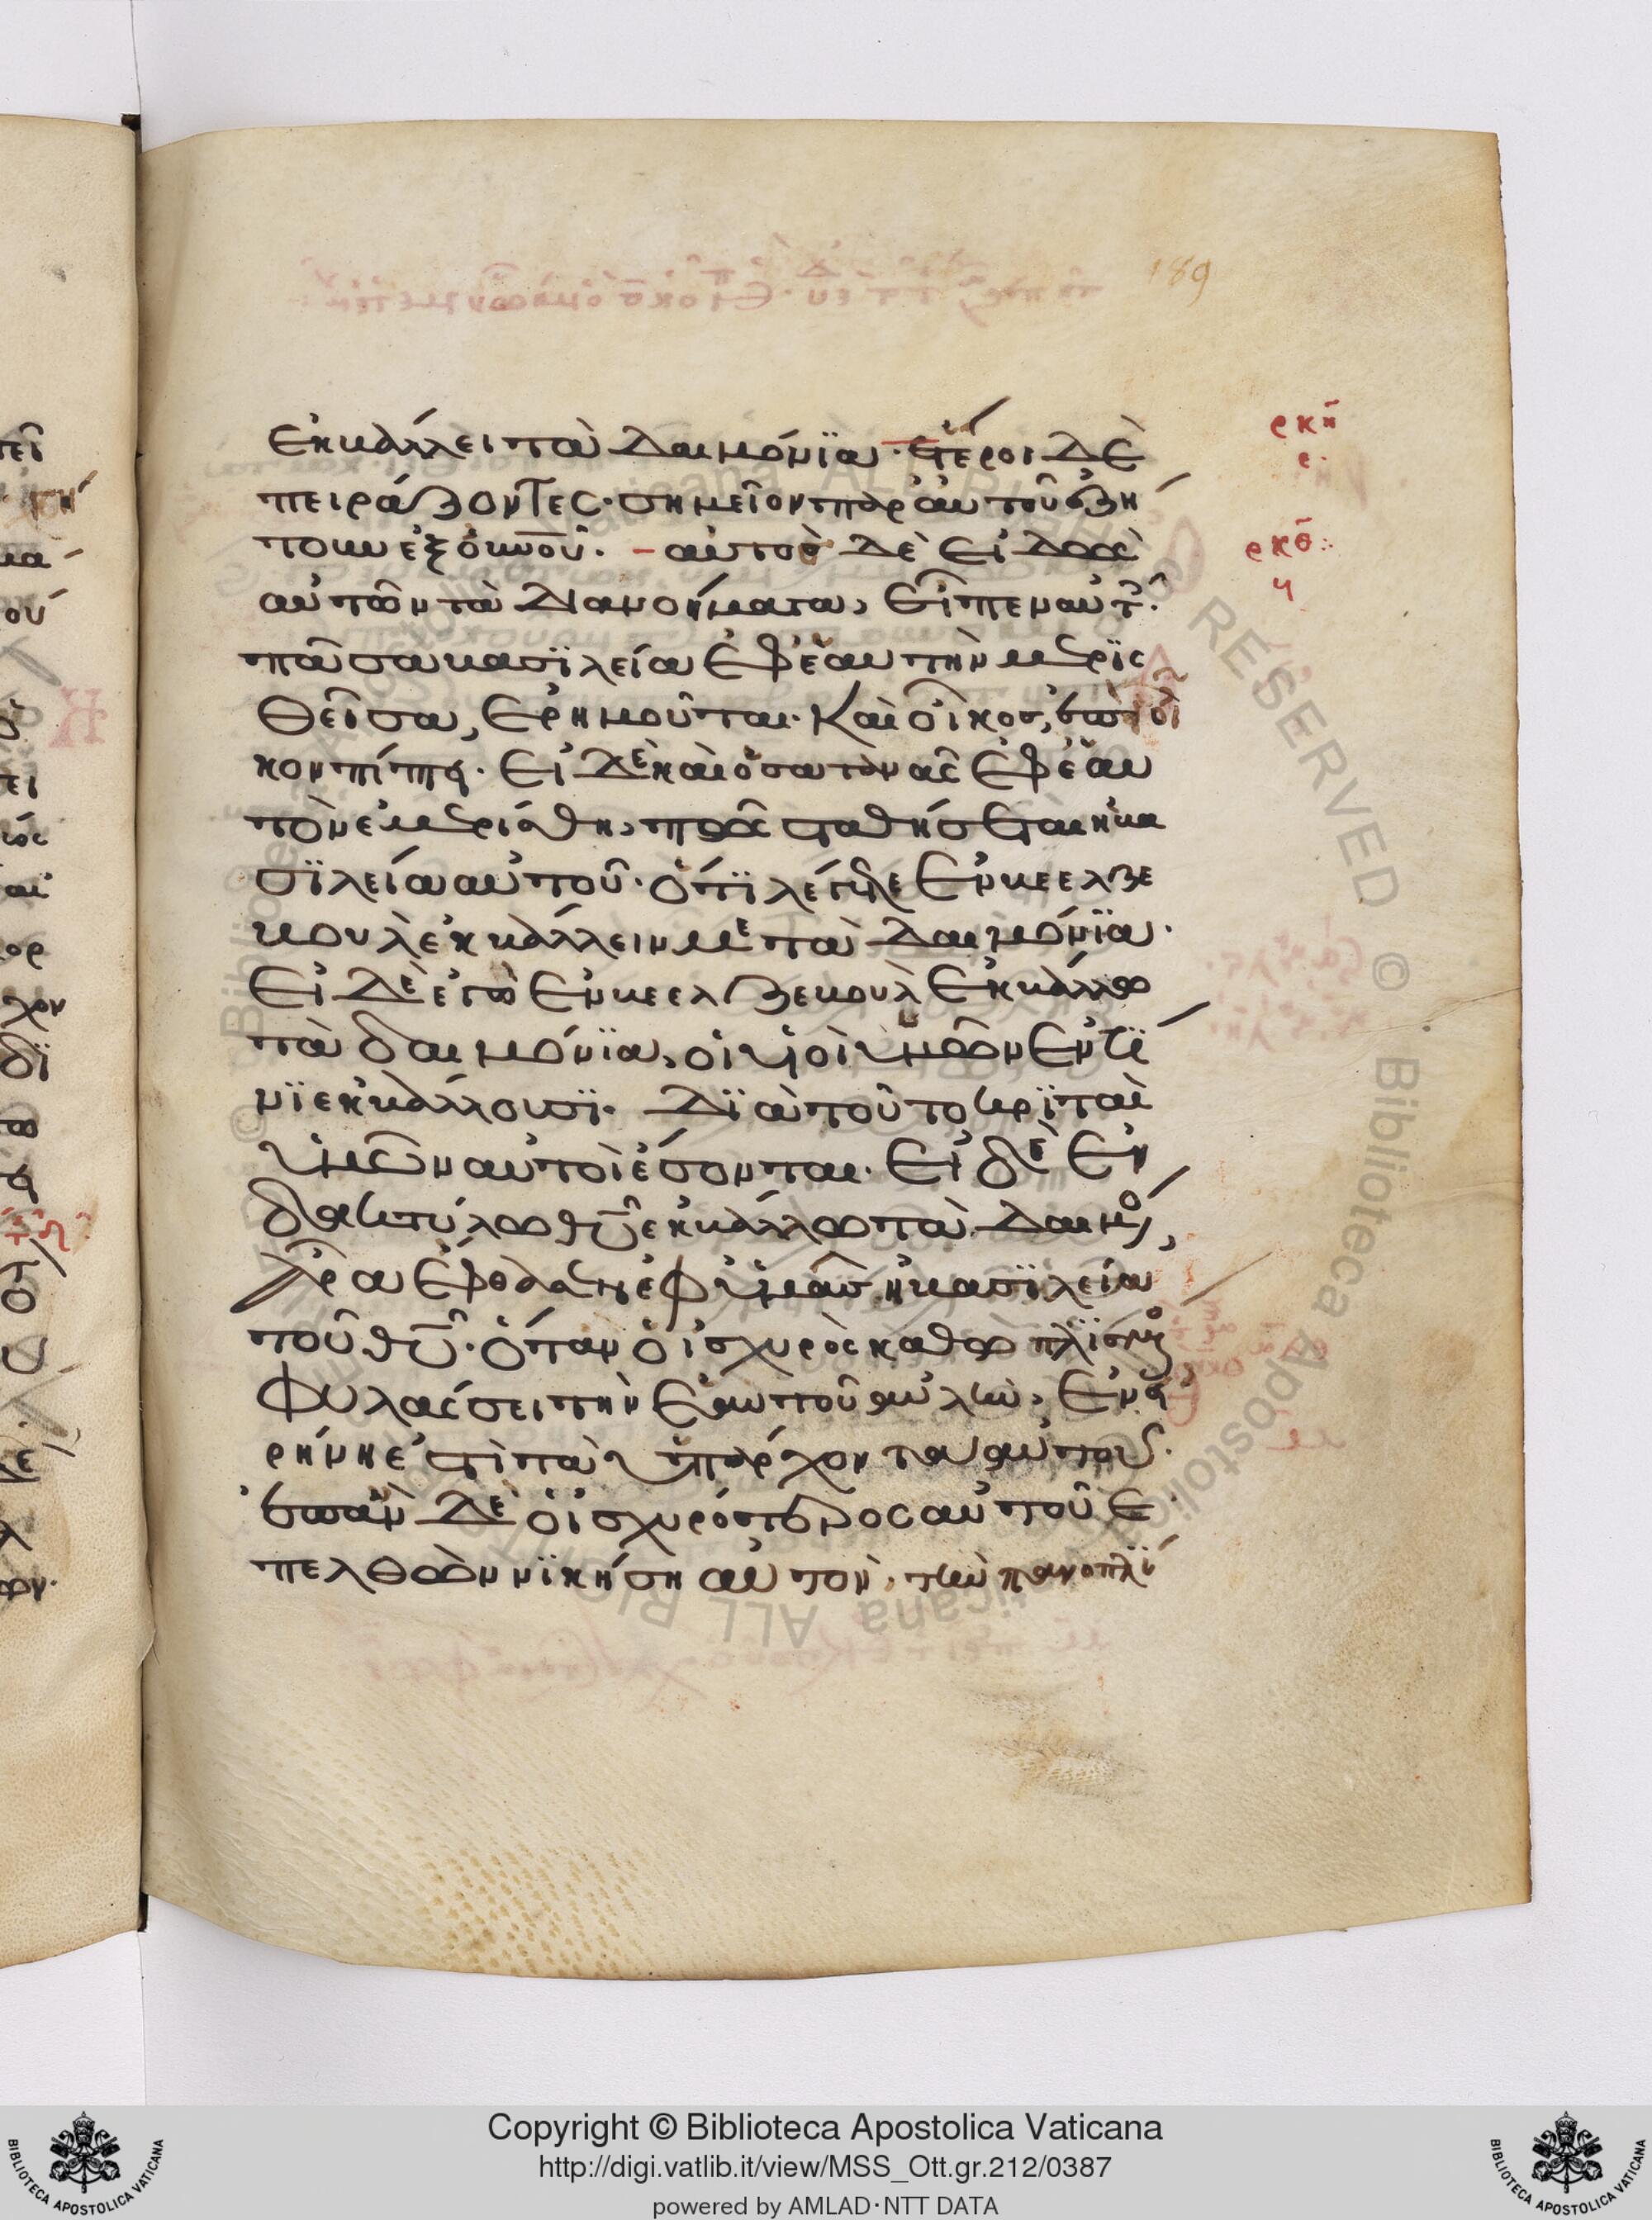 189
ἐκβάλλει τὰ δαιμόνϊα· ἕτεροι δὲ
πειράζοντες· σημεῖον παρ' αὐτοῦ ἐζή
τουν ἐξ οὐνοῦ. – αὐτὸς δὲ εἰδὼς
αὐτῶν τὰ διανοήματα, εἶπεν αὐτ
πᾶσα βασϊλεία ἐφ' ἑαυτὴν μερϊσ
θεῖσα, ἐρημοῦται· καὶ οἶκος, ἐπὶ οἶ
κον πίπτει· εἰ δὲ καὶ ὁ σατανᾶς ἐφ' ἑαυ
τὸν ἐμερίσθη, πῶς σταθήσεται ἡ βα
σϊλεία αὐτοῦ· ὅτϊ λέγετε ἐν βεελζε
βουλ ἐκβάλλειν με τὰ δαιμόνϊα·
εἰ δὲ ἐγὼ ἐν βεελζεβουλ ἐκβάλλω
τὰ δαιμόνϊα, οἱ υἱοὶ ὑμῶν ἐν τί
νϊ ἐκβάλλουσϊ· Δϊὰ τοῦτο κρϊταὶ
ὑμῶν αὐτοὶ ἔσονται· εἰ δὲ ἐν
δακτύλω θῦ ἐκβάλλω τὰ δαιμό,
ἄρα ἔφθασεν ἐφ' ὑμᾶς ἡ βασϊλεία
τοῦ θῦ· ὅταν ὁ ἰσχυρὸς καθωπλϊσμ
φυλάσσει τὴν ἑαυτοῦ αὐλὴν, ἐν εἰ
ρήνη ἐστὶ τὰ ὑπάρχοντα αὐτοῦ·
ἐπὰν δὲ ὁ ἰσχυρότερος αὐτοῦ ἐ
πελθὼν νϊκήση αὐτὸν, τὴν πανοπλί
ρκη
ε·
ρκθ
Copyright © Biblioteca Apostolica Vaticana
http://digi.vatlib.it/view/MSS_Ott.gr.212/0387
powered by AMLAD·NTT DATA